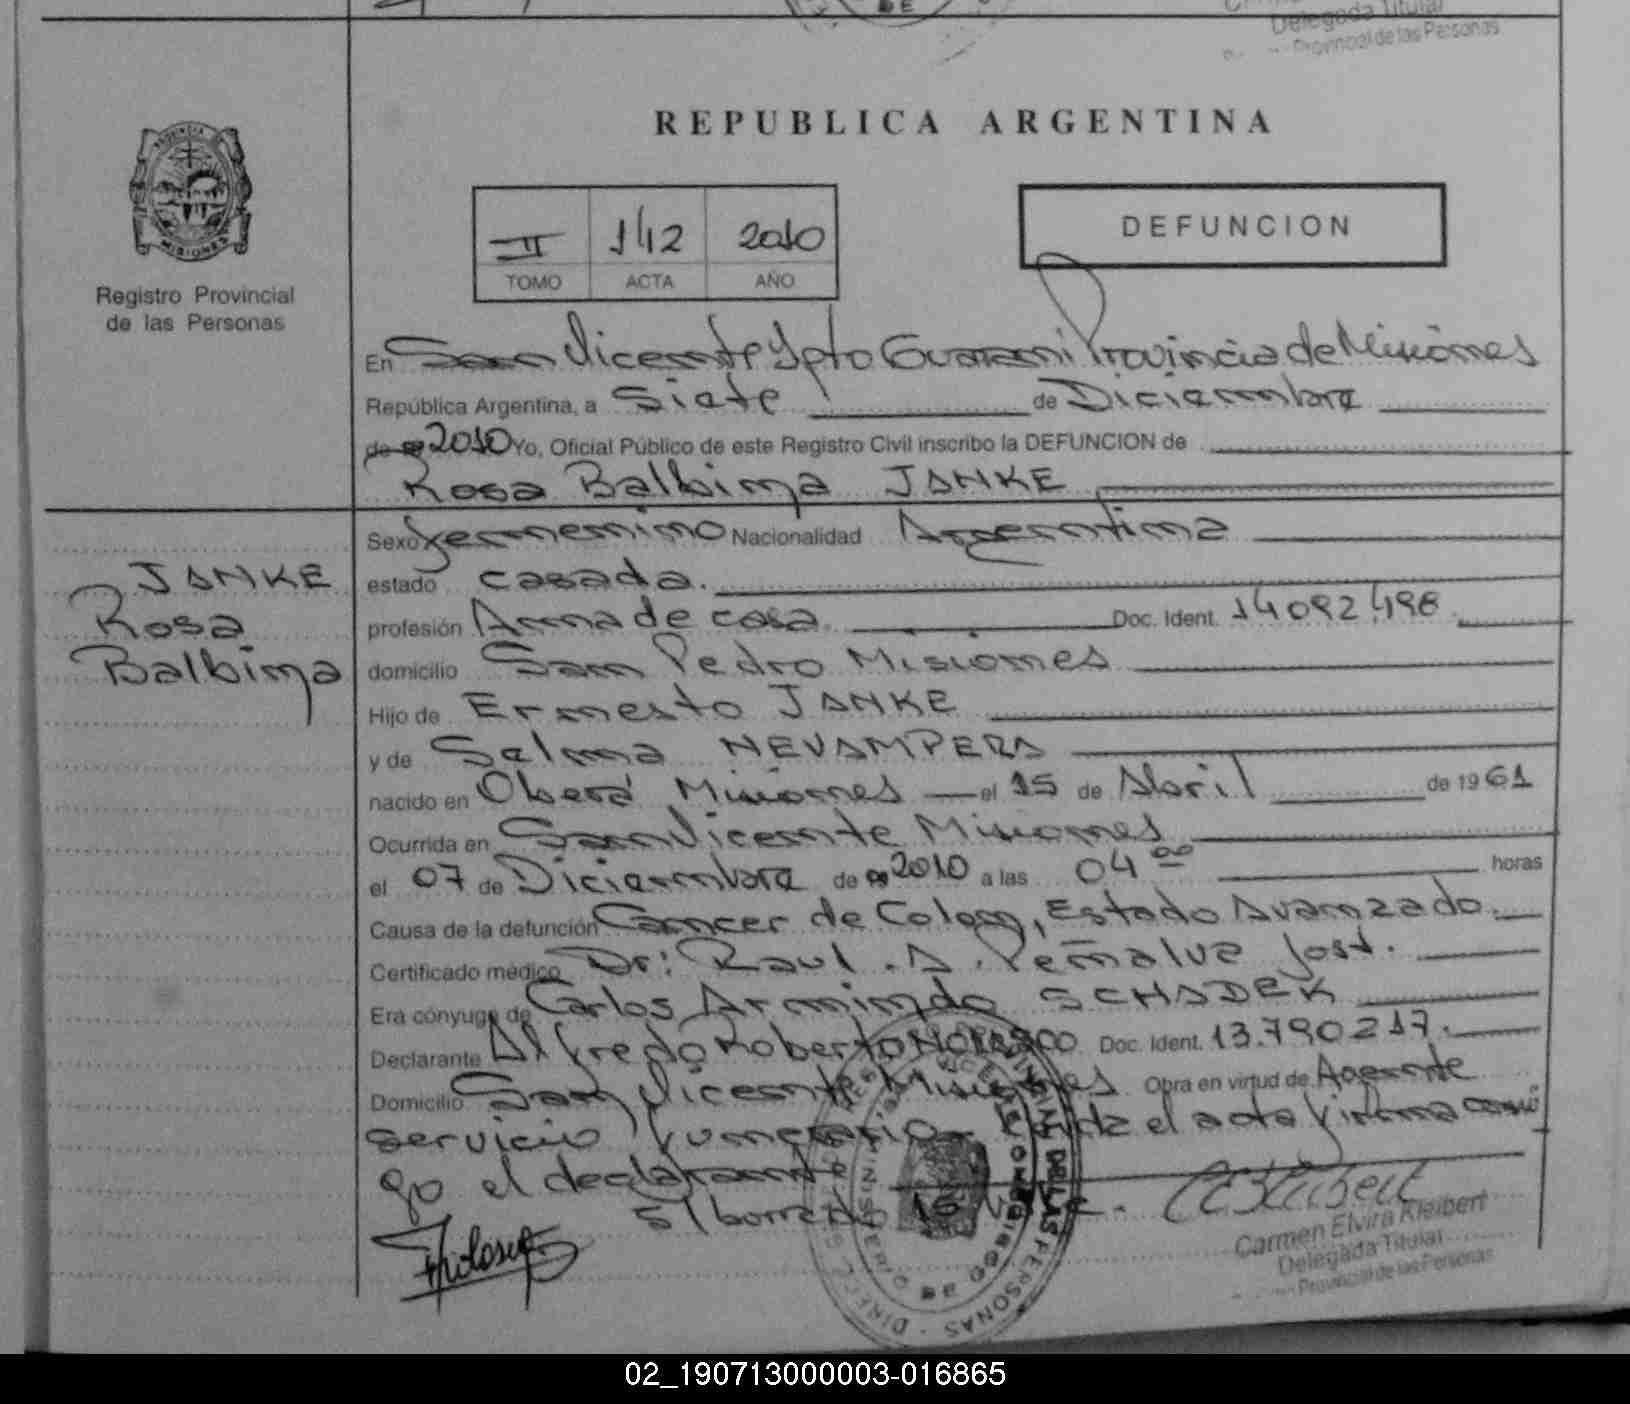 DE
Delegada Titular
Provincial de las Personas
REPUBLICA ARGENTINA
PROVINCIA DE
MISIONES
Registro Provincial
de las Personas
II 1412 2010
TOMO ACTA AÑO
DEFUNCION
En San Vicente Dpto Guarani Provincia de Misiones
República Argentina, a Siete de Diciembre
de 2010 Yo, Oficial Público de este Registro Civil inscribo la DEFUNCION de
Rosa Balbina JANKE
JANKE
Rosa
Balbina
Sexo femenino Nacionalidad Argentina
estado casada.
profesión Ama de casa. Doc. Ident. 14092,498
domicilio San Pedro Misiones
Hijo de Ernesto JANKE
y de Selma NEVAMPERA
nacido en Oberá Misiones el 15 de Abril de 1961
Ocurrida en San Vicente Misiones
el 07 de Diciembre de 2010 a las 04 00 horas
Causa de la defunción Cancer de Colon, Estado Avanzado.
Certificado médico Dr: Raul . A . Peñalva Jost.
Era cónyuge de Carlos Armindo SCHADEK
Declarante Alfredo Roberto Doc. Ident. 13.790217.
Domicilio San Vicente Misiones Obra en virtud de Agente
servicio funerario. el acta firma conmi
go el declarante
s/borrado
Carmen Elvira Kleibert
Delegada Titular
Provincial de las Personas
02_190713000003-016865